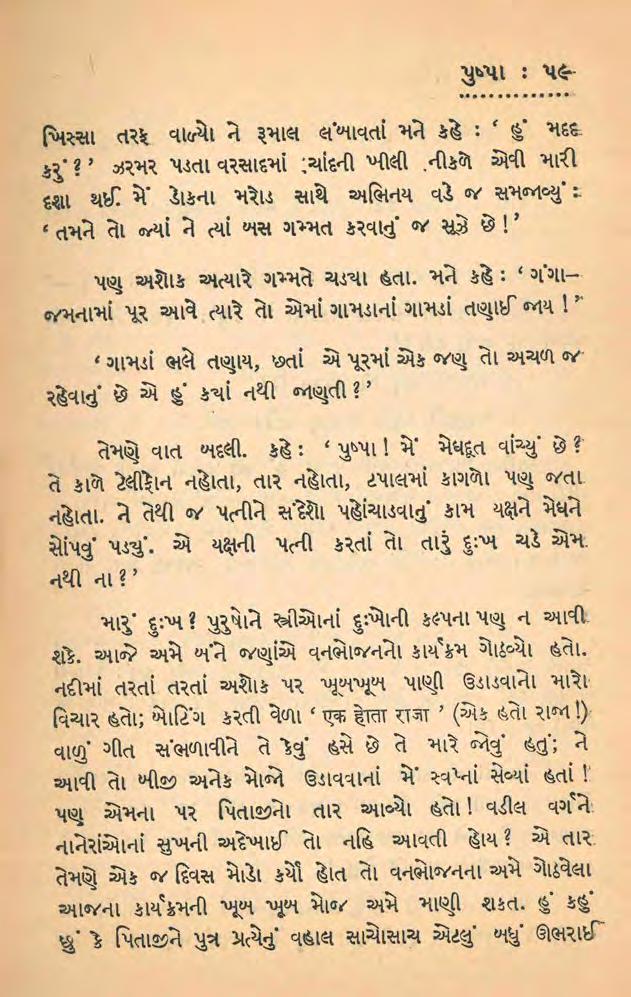 પુષ્પા : ૫૯
ખિસ્સા તરફ વાળ્યો ને રૂમાલ લંબાવતાં મને કહે : ‘ હું મદદ
કરું ? ’ ઝરમર પડતા વરસાદમાં ચાંદની ખીલી નીકળે એવી મારી
દશા થઈ. મેં ડોકના મરોડ સાથે અભિનય વડે જ સમજાવ્યું :
‘ તમને તો જ્યાં ને ત્યાં બસ ગમ્મત કરવાનું જ સૂઝે છે ! ’
પણ અશોક અત્યારે ગમ્મતે ચડ્યા હતા. મને કહે : ‘ ગંગા–
જમનામાં પૂર આવે ત્યારે તો એમાં ગામડાનાં ગામડાં તણાઈ જાય ! ’
‘ ગામડાં ભલે તણાય, છતાં એ પૂરમાં એક જણ તો અચળ જ
રહેવાનું છે એ હું ક્યાં નથી જાણતી ? ’
તેમણે વાત બદલી. કહે : ‘ પુષ્પા ! મેં મેઘદૂત વાંચ્યું છે ?
તે કાળે ટેલીફોન નહોતા, તાર નહોતા, ટપાલમાં કાગળો પણ જતા
નહોતા. ને તેથી જ પત્નીને સંદેશો પહોંચાડવાનું કામ યક્ષને મેઘને
સોંપવું પડ્યું. એ યક્ષની પત્ની કરતાં તો તારું દુઃખ ચડે એમ
નથી ના ? ’
મારું દુઃખ ? પુરુષોને સ્ત્રીઓનાં દુઃખોની કલ્પના પણ ન આવી
શકે. આજે અમે બંને જણાંએ વનભોજનનો કાર્યક્રમ ગોઠવ્યો હતો.
નદીમાં તરતાં તરતાં અશોક પર ખૂબખૂબ પાણી ઉડાડવાનો મારો
વિચાર હતો; બોટિંગ કરતી વેળા ‘ एक होता राजा ’ (એક હતો રાજા !)
વાળું ગીત સંભળાવીને તે કેવું હસે છે તે મારે જોવું હતું; ને
આવી તો બીજી અનેક મોજો ઉડાવવાનાં મેં સ્વપ્નાં સેવ્યાં હતાં !
પણ એમના પર પિતાજીનો તાર આવ્યો હતો ! વડીલ વર્ગને
નાનેરાંઓનાં સુખની અદેખાઈ તો નહિ આવતી હોય ? એ તાર
તેમણે એક જ દિવસ મોડો કર્યો હોત તો વનભોજનના અમે ગોઠવેલા
આજના કાર્યક્રમની ખૂબ ખૂબ મોજ અમે માણી શકત. હું કહું
છું કે પિતાજીને પુત્ર પ્રત્યેનું વહાલ સાચોસાચ એટલું બધું ઊભરાઈ